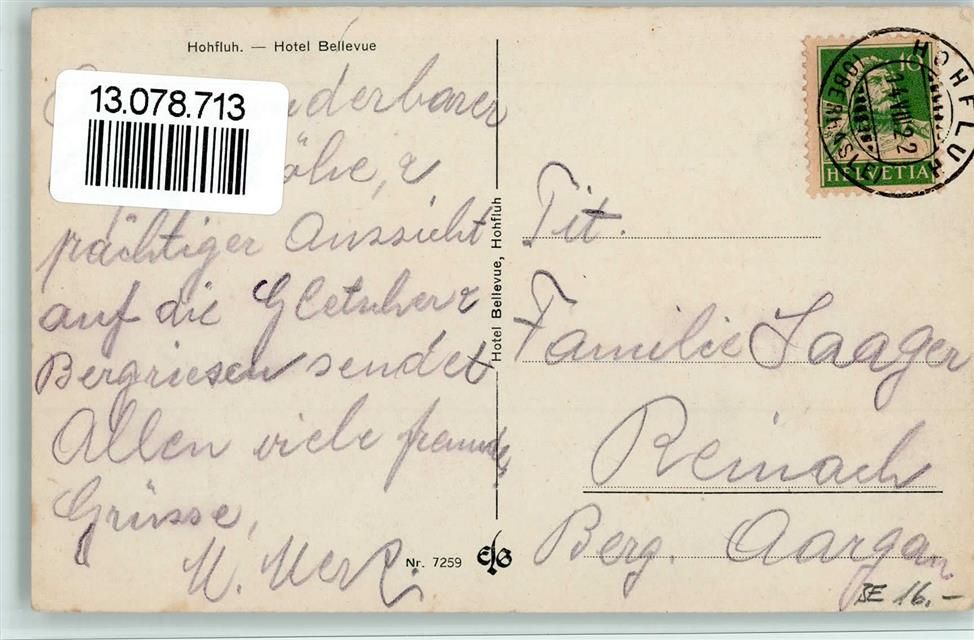 Hohfluh. — Hotel Bellevue
13.078.713
derbarer
öhe, &
prächtiger Aussicht
auf die Gletscher &
Bergriesen sendet
Allen viele freundl.
Grüsse,
Hotel Bellevue, Hohfluh
Nr. 7259
10
HELVETIA
HOHFLUH
14.VIII.22
Tit.
Familie Saager
Reinach
Berg. Aargau.
BE 16.-